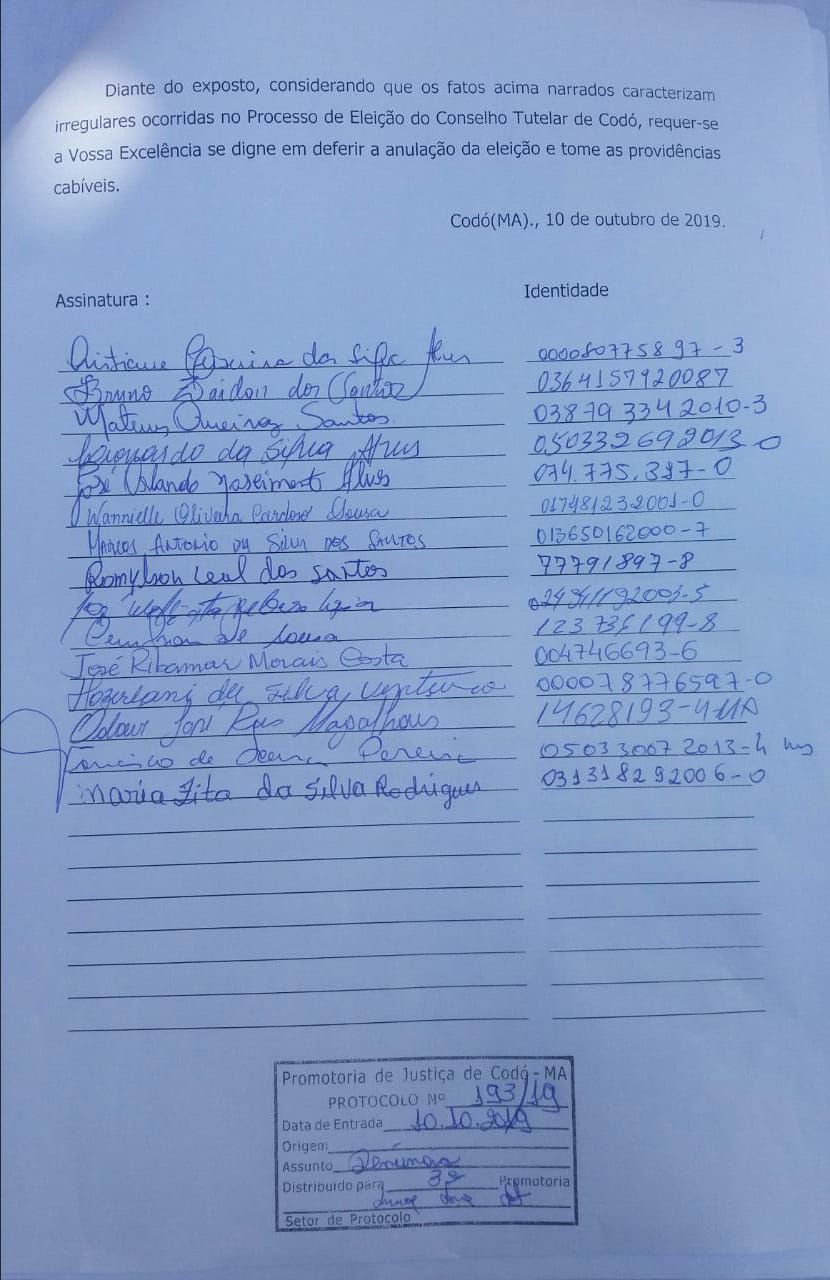 Diante do exposto, considerando que os fatos acima narrados caracterizam
irregulares ocorridas no Processo de Eleição do Conselho Tutelar de Codó, requer-se
a Vossa Excelência se digne em deferir a anulação da eleição e tome as providências
cabíveis.
Codó(MA)., 10 de outubro de 2019.
Assinatura :
Identidade
da Silva
0000807758 97-3
Bruno dos Santos
0364157920087
Mateus Queiroz Santos
03879 334 2010-3
da Silva
050332692013-0
José Orlando Nascimento Alves
Wannielle Oliveira Cardoso Sousa
017481232001-0
Marcos Antonio da Silva dos Santos
013650162000-7
Romylson Leal dos Santos
77791897-8
de Sousa
José Ribamar Morais Costa
004746693-6
da Silva
000078776597-0
José Magalhaes
14628193-4 MA
Francisco de Pereira
05033007 2013-4
Maria Zita da Silva Rodrigues
031318292006-0
Promotoria de Justiça de Codó - MA
PROTOCOLO Nº 193/19
Data de Entrada 10.10.2019
Origem
Assunto Denúncia
Distribuído para 3ª Promotoria
Setor de Protocolo